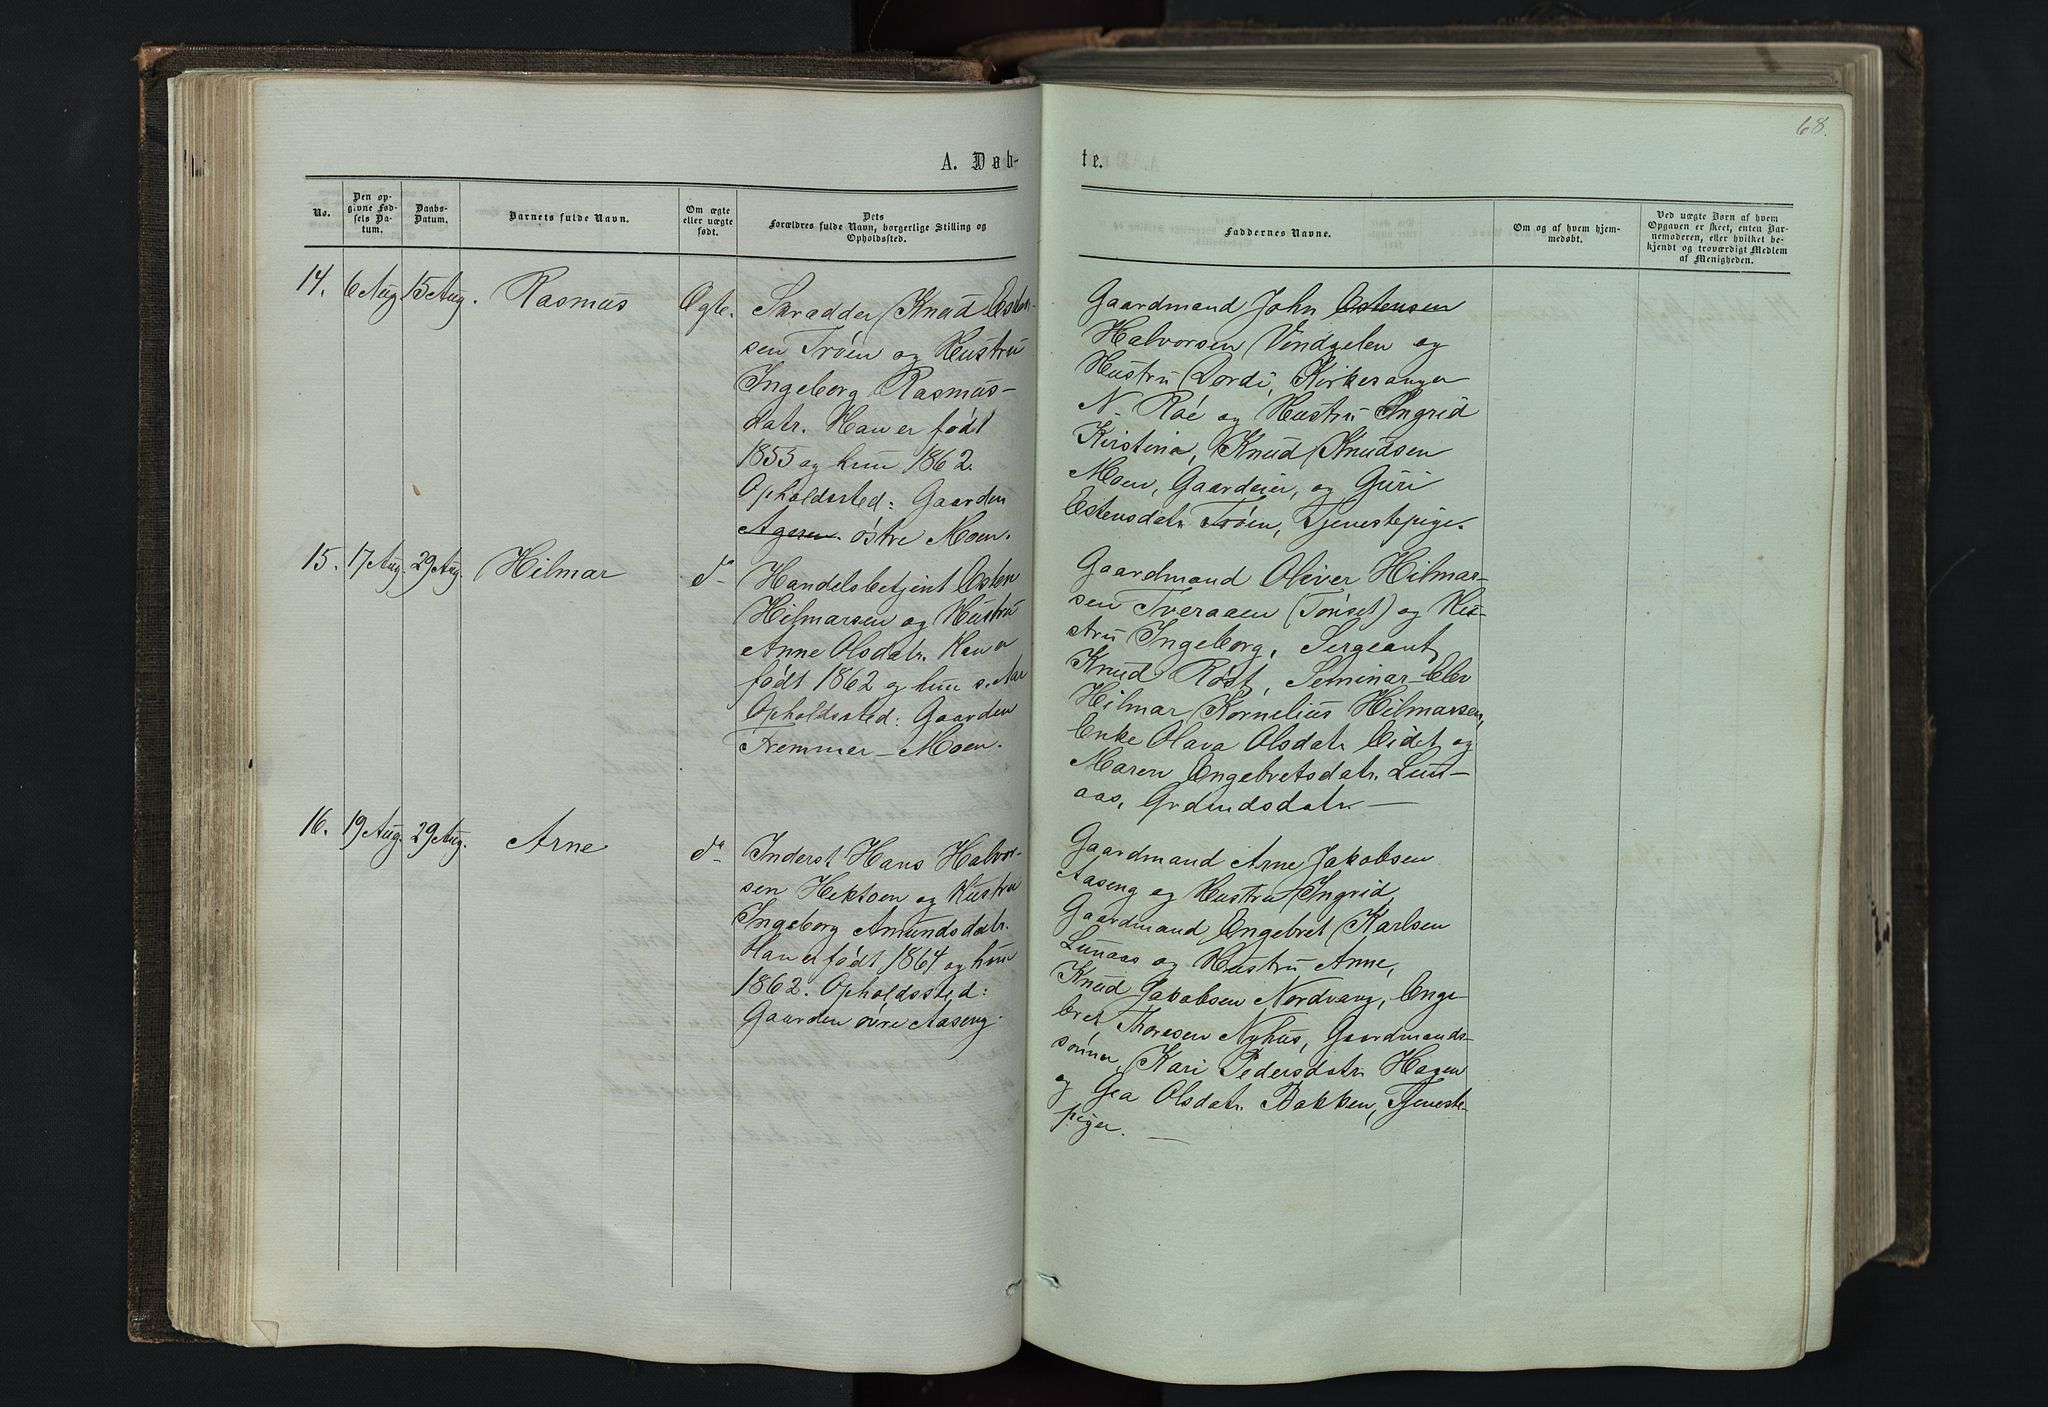 68.
A. Døb-
te.
No.
Den op-
givne Fød-
sels Da-
tum.
Daabs-
Datum.
Barnets fulde Navn.
Om ægte
eller uægte
født.
Dets
Forældres fulde Navn, borgerlige Stilling og
Opholdssted.
Faddernes Navne.
Om og af hvem hjem-
medøbt.
Ved uægte Børn af hvem
Opgaven er skeet, enten Bar-
nemoderen, eller hvilket be-
kjendt og troværdigt Medlem
af Menigheden.
14. 6 Aug. 15 Aug. Rasmus Ægte.
Skrædder Knud Esten-
sen Trøen og Hustru
Ingeborg Rasmus-
datr. Han er født
1853 og hun 1862.
Opholdssted: Gaarden
Ageren. østre Moen.
Gaardmand John Estensen
Halvorsen Vingelen og
Hustru Dordi, Kirkesanger
N. Roé og Hustru Ingrid
Kirstina, Knud Knudsen
Moen, Gaardeier, og Guri
Estensdatr Trøen, Tjenestepige.
15. 17 Aug. 29 Aug. Hilmar do
Handelsbetjent Esten
Hilmarsen og Hustru
Anne Olsdatr. Han er
født 1862 og hun s. Aar
Opholdssted: Gaarden
Fremmer-Moen.
Gaardmand Oliver Hilmar-
sen Tveraaen (Tönset) og Hu-
stru Ingeborg, Sergeant
Knud Røst, Seminar-Elev
Hilmar Kornelius Hilmarsen,
Enke Olava Olsdatr. Eidet og
Maren Engebretsdatr. Lun-
aas, Grdmdsdatr. —
16. 19 Aug. 29 Aug. Arne do
Inderst Hans Halvor-
sen Hektoen og Hustru
Ingeborg Amundsdatr.
Han er født 1864 og hun
1862. Opholdssted:
Gaarden övre Aaseng.
Gaardmand Arne Jakobsen
Aaseng og Hustru Ingrid,
Gaardmand Engebret Karlsen
Lunaas og Hustru Anne,
Knud Jakobsen Nordvang, Enge-
bret Thoresen Nyhus, Gaardmands-
sönner, Kari Pedersdatr Hagen
og Gea Olsdatr. Bakken, Tjeneste-
piger. —